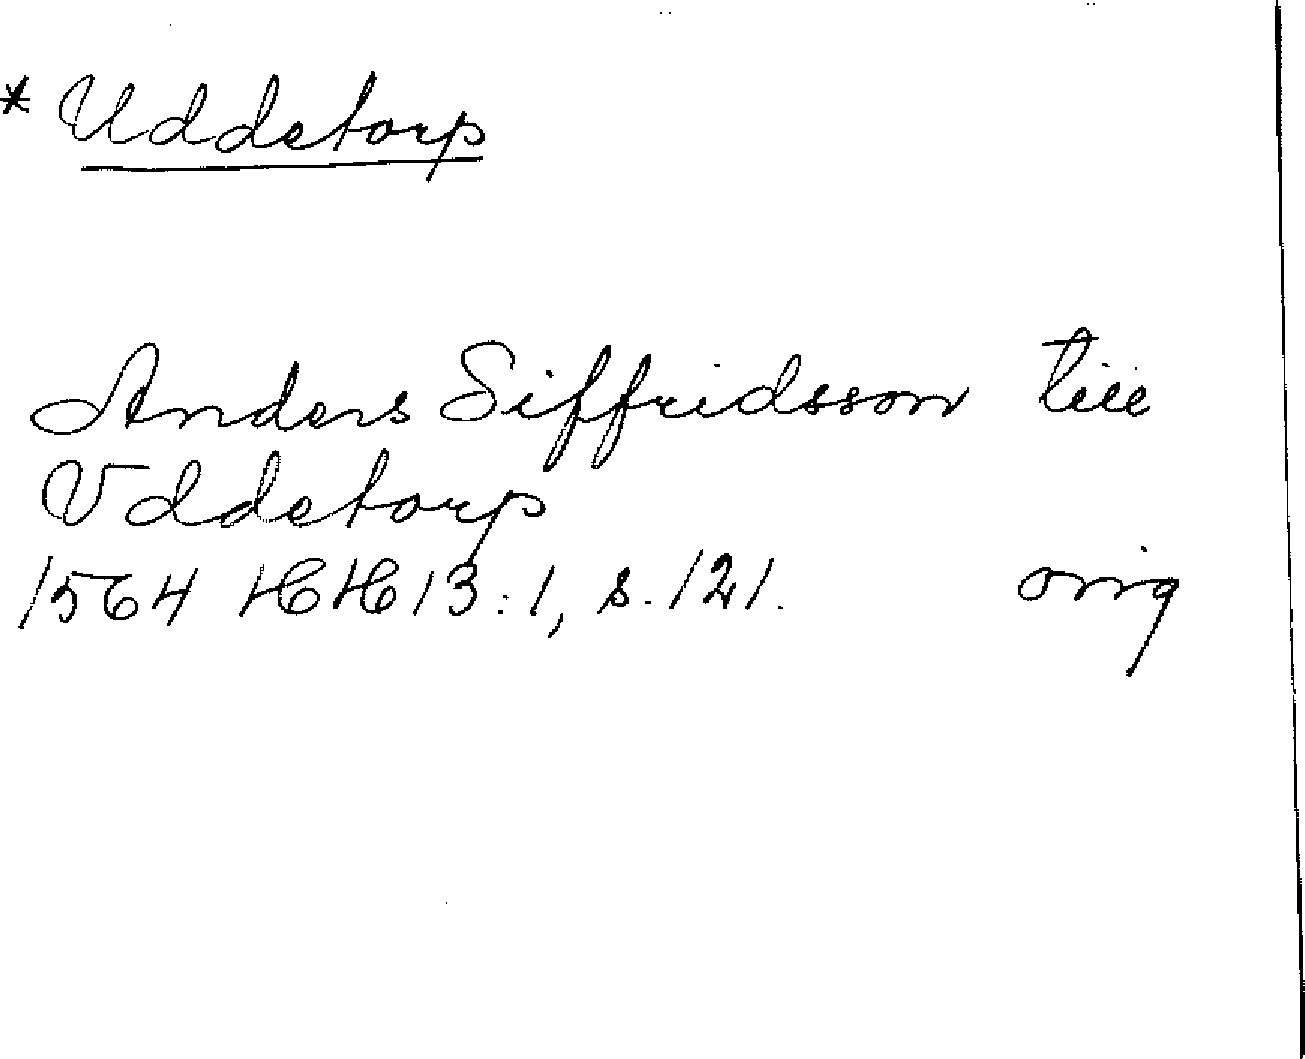 * Uddetorp
Anders Siffridsson till
Vddetorp
1564 HH 13:1, s. 121. orig